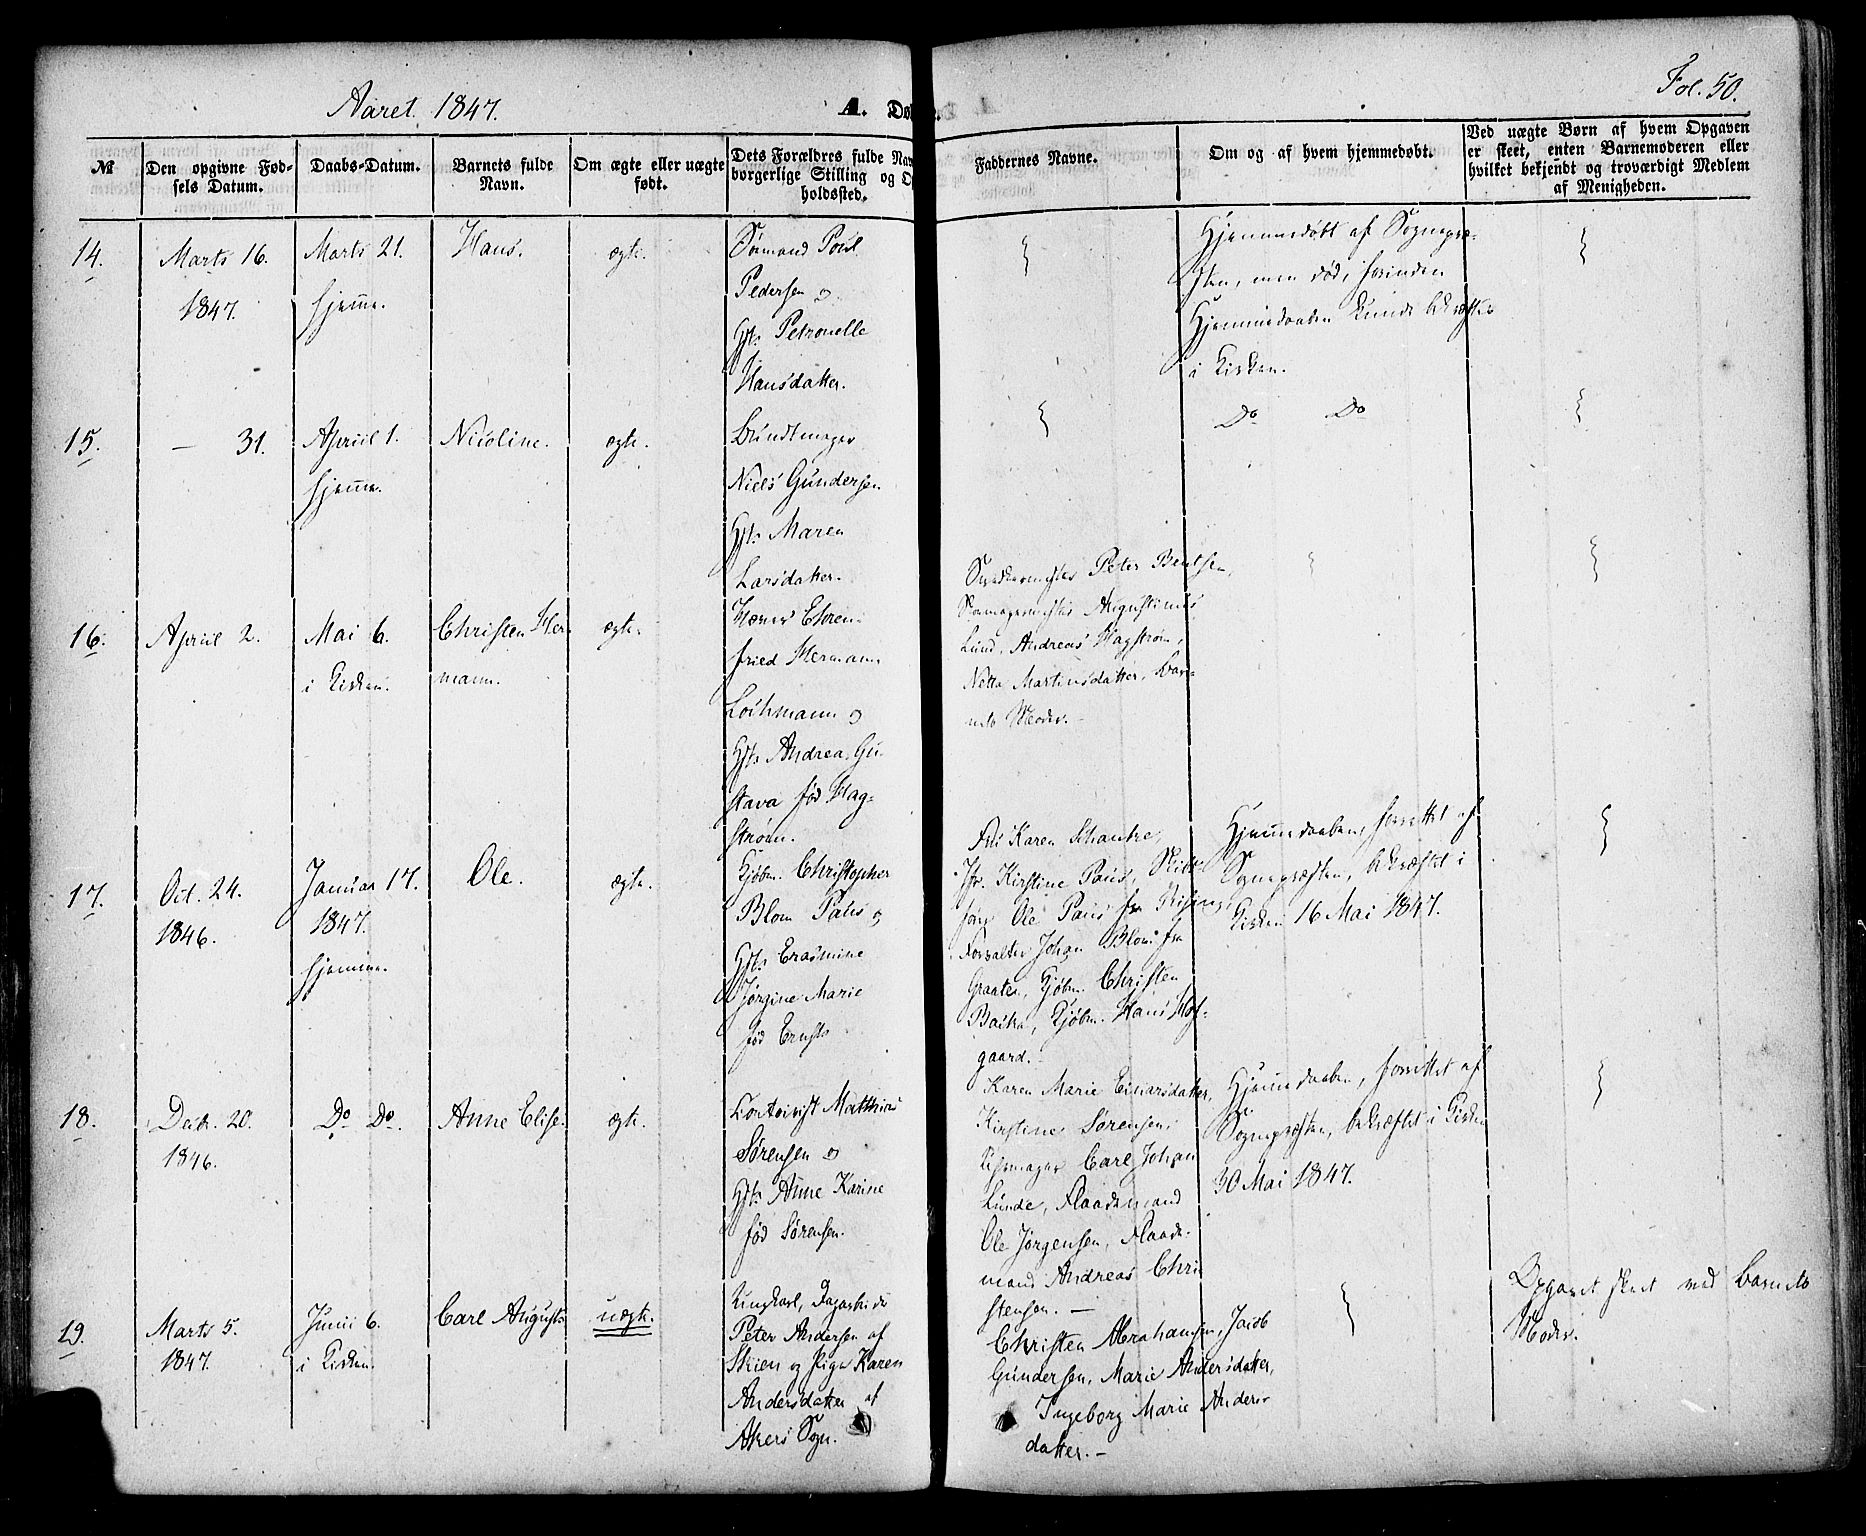 Aaret 1847.
A. Dø
Fol. 50.
№
Den opgivne Fød-
sels Datum.
Daabs-Datum.
Barnets fulde
Navn.
Om ægte eller uægte
født.
Dets Forældres fulde Nav
borgerlige Stilling og O
holdssted.
Faddernes Navne.
Om og af hvem hjemmedøbt.
Ved uægte Børn af hvem Opgaven
er skeet, enten Barnemoderen eller
hvilket bekjendt og troværdigt Medlem
af Menigheden.
14.
Marts 16.
1847.
Marts 21.
hjemme.
Hans.
ægte.
Sømand Poul
Pedersen og
Hst. Petronelle
Hansdatter.
Hjemmedøbt af Sognepræ-
sten, men død, forinden
Hjemmedaaben kunde bekræftes
i Kirken.
15.
— 31.
Apriil 1.
hjemme.
Nicoline.
ægte.
Bundtmager
Niels Gundersen
Hst. Maren
Larsdatter.
Do Do
16.
Apriil 2.
Mai 6.
i Kirken.
Christen Her-
mann.
ægte.
Ehren-
fried Hermann
Lochmann og
Hst. Andrea Gu-
stava fød Hag-
strøm.
Snedkermester Peter Bentsen,
Skomagermester Augustinus
Lund, Andreas Hagstrøm,
Netta Martinsdatter, Bar-
nets Moder. —
17.
Oct. 24.
1846.
Januar 17.
1847.
hjemme.
Ole.
ægte.
Kjøbm. Christopher
Blom Paus og
Hst. Erasmine
Jørgine Marie
fød Ernst
Karen Schanke,
Jfr. Kirstine Paus, Skibs-
før. Ole Paus fra Bising,
Forvalter Johan Blom fra
Graaten, Kjøbm. Christen
Backa, Kjøbm. Hans Høf-
gaard. —
Hjemmedaaben, forrettet af
Sognepræsten, bekræftet i
Kirken 16 Mai 1847.
18.
Decbr. 20.
1846.
Do Do.
Anne Elise.
ægte.
Matthias
Sørensen og
Hst. Anne Karine
fød Sørensen.
Karen Marie Einarsdatter,
Kirstine Sørensen,
Carl Johan
Lunde, Flaademand
Ole Jørgensen, Flaade-
mand Andreas Chri-
stensen. —
Hjemmedaaben, forrettet af
Sognepræsten, bekræftet i Kirken
30 Mai 1847.
19.
Marts 5.
1847.
Junii 6.
i Kirken.
Carl August.
uægte.
Ungkarl, Dagarbeider
Peter Andersen af
Skien og Pige Karen
Andersdatter af
Akers Sogn.
Christen Abrahamsen, Jacob
Gundersen, Marie Andersdatter,
Ingeborg Marie Anders-
datter. —
Opgavet skeet ved Barnets
Moder.